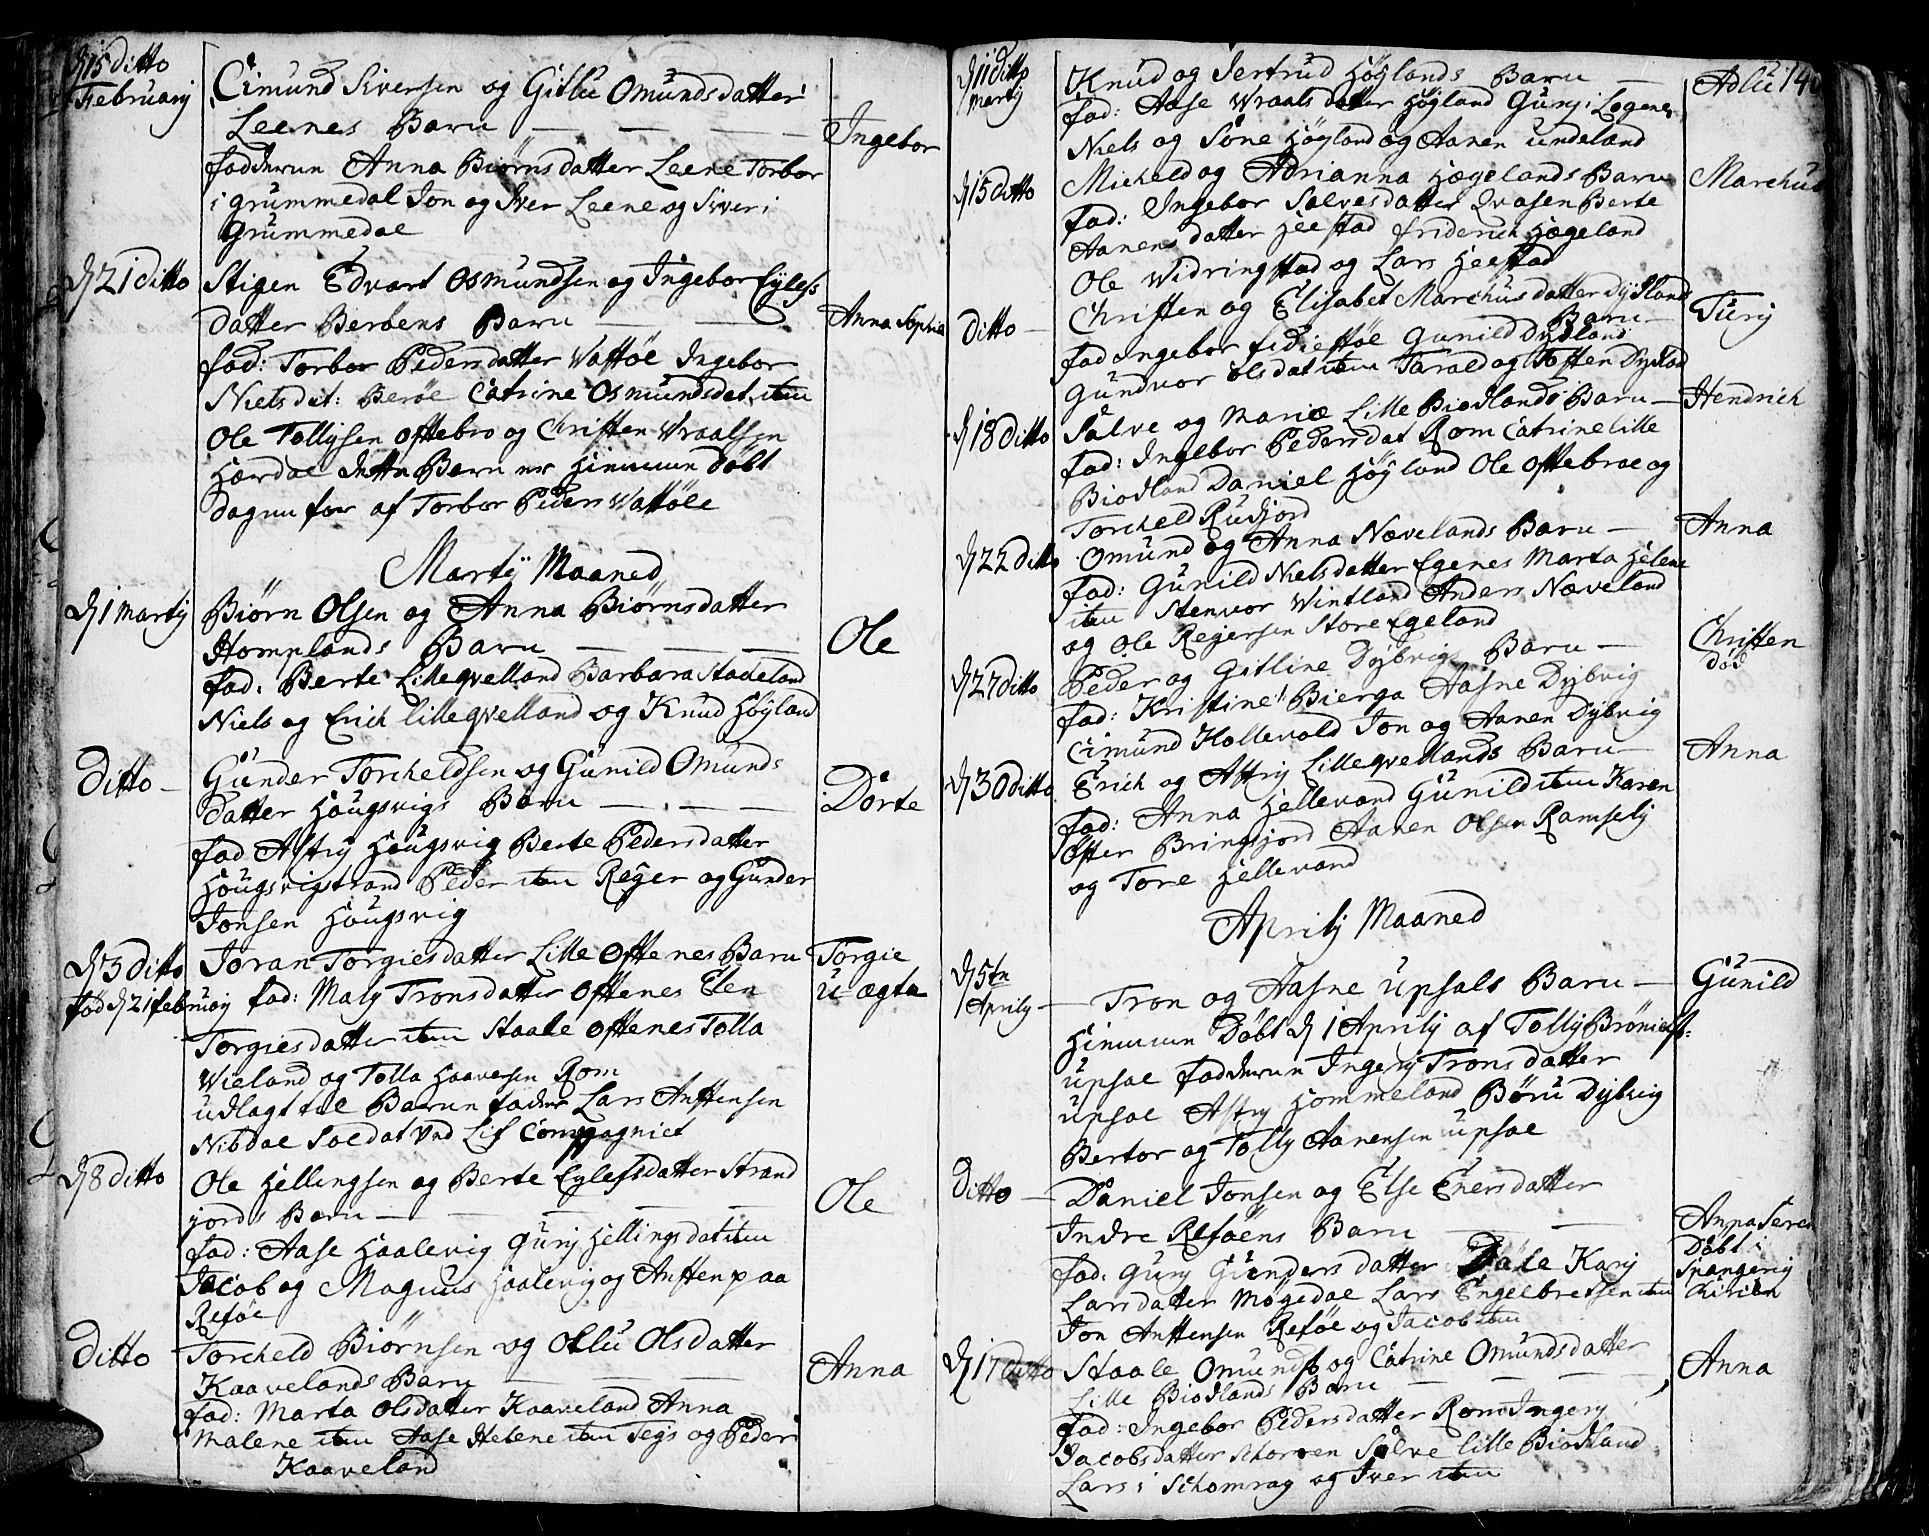 d 15 ditto
February
Cimund Siversen og Gitlu Omundsdatter
Leenes Barn — — — — Ingebor
fadderne Anna Biørnsdatter Leene Torbor
i Grummedal Jon og Iver Leene og Siver i
Grummedal
d 21 ditto Stigen Edvart Osmundsen og Ingebor Eylefs
datter Berøens Barn — — Anna Sophia
fad: Torbor Pedersdatter Vattøe Ingebor
Nielsdat: Berøe Catrine Osmundsdat. item
Ole Tollysen Oftebro og Christen Wraalsen
Hærdal dette Barn er Hiemme døbt
dagen for af Torbor Peders Vattøle
Martij Maaned
d 1 martij Biørn Olsen og Anna Biørnsdatter
Homplands Barn — — — Ole
fad: Berte Lilleqvelland Barbara Staveland
Niels og Erich lilleqvelland og Knud Høyland
Ditto — Gunder Torcheldsen og Gunild Omunds
datter Hougsvigs Barn — — — Dorte
fad Astry Hougsvig Berte Pedersdatter
Hougsvigstrand Peder item Reyer og Gunder
Jonsen Hougsvig
d 3 ditto Joran Torgiesdatter Lille Oftenes Barn Torgie
fød d 21 februarij fad: Maly Tronsdatter Oftenes Elen u-ægte
Torgiesdatter item Staale Oftenes Tolla
Wieland og Tolla Haaversen Rom
udlagt til Barnefader Lars Anstensen
Nibdal Soldat Und Lif Compagniet
d 8 ditto Ole Hellingsen og Berte Eylefsdatter Strand
jords Barn — — — — — Ole
fad: Aase Haalevig Gury Hellingsdat item
Jacob og Magnus Haalevig og Ansten paa
Reføe
Ditto Torcheld Biørnsen og Ollu Olsdatter
Kaavelands Barn — — — Anna
fad: Marta Olsdatter Kaaveland Anna
Malene item Aase Helene item Tegs og Peder
Kaaveland
d 11 ditto
martij
Knud og Jertrud Høylands Barn — Adlu 14
fad: Aase Wraalsdatter Høyland Gury i Logene
Niels og Søne Høyland og Aanen Undeland
d 15 ditto Micheld og Adrianna Hægelands Barn Marchus
fad: Ingebor Salvesdatter Qvasen Berte
Aanensdatter Heestad friderich Hægeland
Ole Widringstad og Lars Heestad
Ditto — Christen og Elisabet Marchusdatter Dydlands
Barn — Tury
fad Ingebor fidieftøl Gunild Dydland
Gundvor Olsdat item Tarald og Tosten Dydland
d 18 ditto Salve og Mariæ Lille Biodlands Barn — Hendrich
fad: Ingebor Pedersdat Rom Catrine lille
Biodland Daniel Høyland Ole Oftebroe og
Torcheld Rudjord
d 22 ditto Omund og Anna Nævelands Barn — Anna
fad: Gunild Nielsdatter Egenes Marta Helene
item Stenvor Vintland Anders Næveland
og Ole Reyersen Store Egeland
d 27 ditto Peder og Gitline Dybvigs Barn — Christen
død
fad: Kristine Bierga Aasne Dybvig
Cimund Hollevold Jon og Aanen Dybvig
d 30 ditto Erich og Astry Lilleqvellands Barn — Anna
fad: Anna Hellevand Gunild item Karen
Efter Bringsjord Aanen Olsen Ramsely
og Tore Hellevand
Aprily Maaned
d 5ten
Aprily — Tron og Aasne Upsals Barn — Gunild
Hiemme Døbt d 1 Aprily af Tolly Brøniels:
Upsal fadderne Ingery Tronsdatter
Upsal Astry Hommeland Børu Dybvig
Bertor og Tolly Aanensen Upsal
Ditto — Daniel Jonsen og Else Enersdatter
Indre Reføens Barn — — Anna Seve
Døbt i
Spangerej
Kirken
fad: Gury Gundersdatter Dale Kary
Larsdatter Møgedal Lars Engelbretsen item
Jon Anstensen Reføe og Jacob item
d 17 ditto Staale Omunds og Catrine Omundsdatter
Lille Biodlands Barn — — — Anna
fad: Ingebor Pedersdatter Rom Ingery
Jacobsdatter Salve lille Biodland
Lars i Schomrag og Iver item